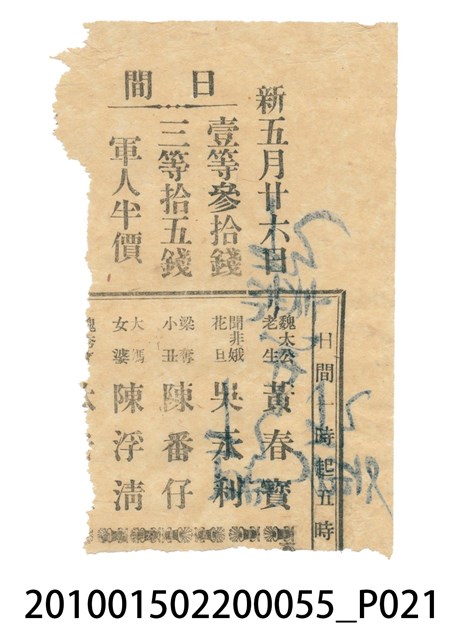 新五月廿六日
日間
壹等參拾錢
三等拾五錢
軍人半價
日間一時起五時
魏太公
老生
黃春寶
聞非娥
花旦
吳永利
梁奪
小丑
陳番仔
大馮
女婆
陳浮清
201001502200055_P021